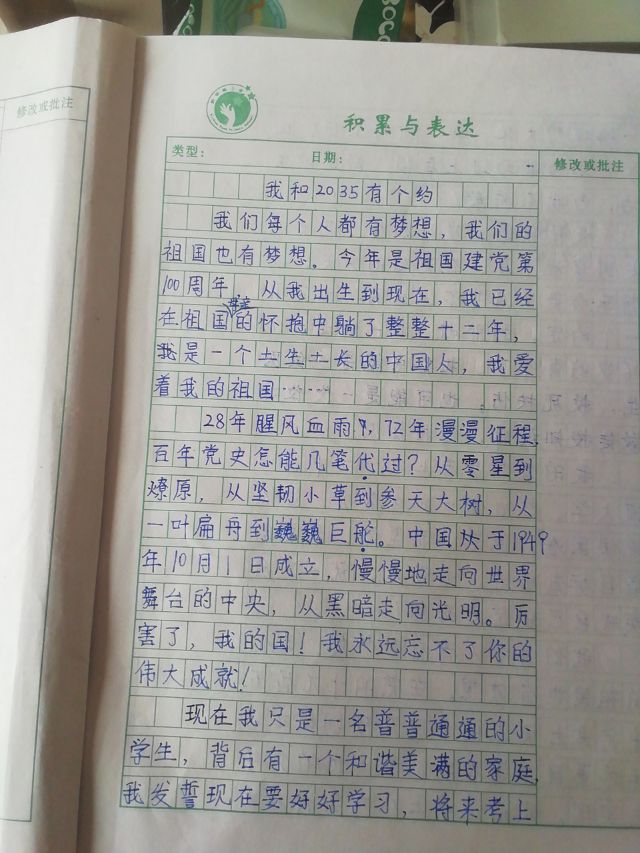 修改或批注
积累与表达
类型： 日期： 修改或批注
我和2035有个约
我们每个人都有梦想，我们的
祖国也有梦想。今年是祖国建党第
100周年，从我出生到现在，我已经
在祖国母亲的怀抱中躺了整整十二年，
我是一个土生土长的中国人，我爱
着我的祖国……
28年腥风血雨，72年漫漫征程，
百年党史怎能几笔代过？从零星到
燎原，从坚韧小草到参天大树，从
一叶扁舟到巍巍巨舵。中国从于1949
年10月1日成立，慢慢地走向世界
舞台的中央，从黑暗走向光明。厉
害了，我的国！我永远忘不了你的
伟大成就！
现在我只是一名普普通通的小
学生，背后有一个和谐美满的家庭，
我发誓现在要好好学习，将来考上